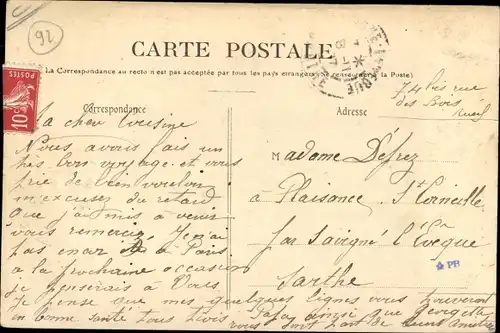 92
CARTE POSTALE
(La Correspondance au recto n'est pas acceptée par tous les pays étrangers. Se renseigner à la Poste)
POSTES
10c
Correspondance
Adresse
74 bis rue
des Bois
Rueil
Ma chère Cousine
Nous avons fais un
très bon voyage et vous
prie de bien vouloir
m'excusez du retard
que j'ai mis à venir
vous remercier Je n'ai
pas encor à Paris
a la prochaine occasion
je penserais à vous
Je pense que mes quelques lignes vous trouveront
en bonne santé tous trois Papa ainsi que Georgette
vous
Madame Défrez
à Plaisance St Corneille
par Savigné l'Évêque
Sarthe
PB